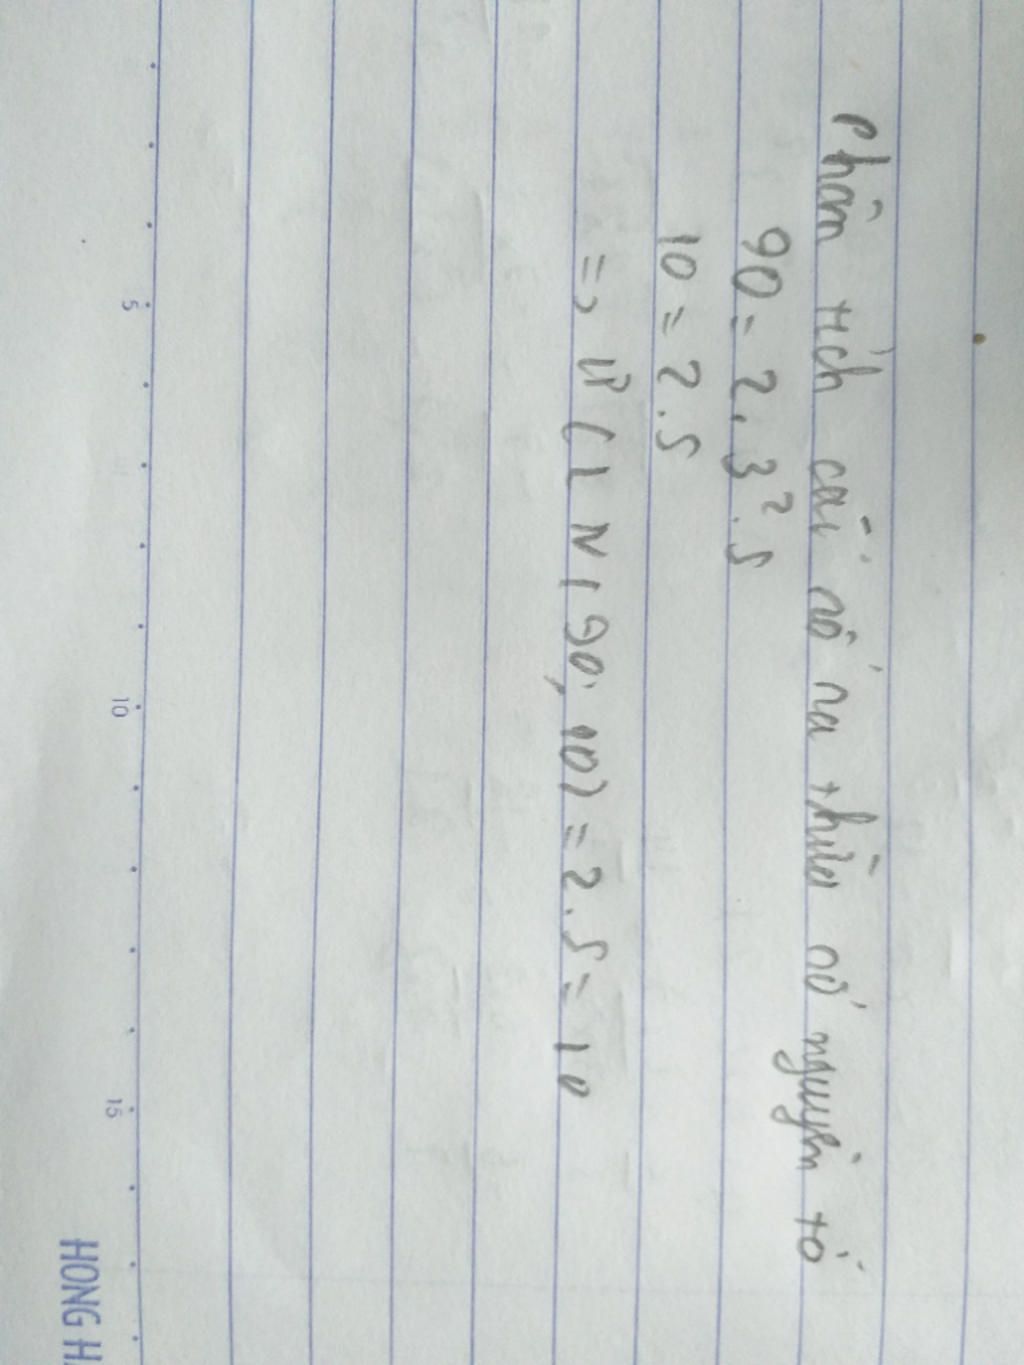 Phân tích các số ra thừa số nguyên tố
90 = 2.3².5
10 = 2.5
=> ƯCLN(90,10) = 2.5 = 10
5
10
15
HONG H